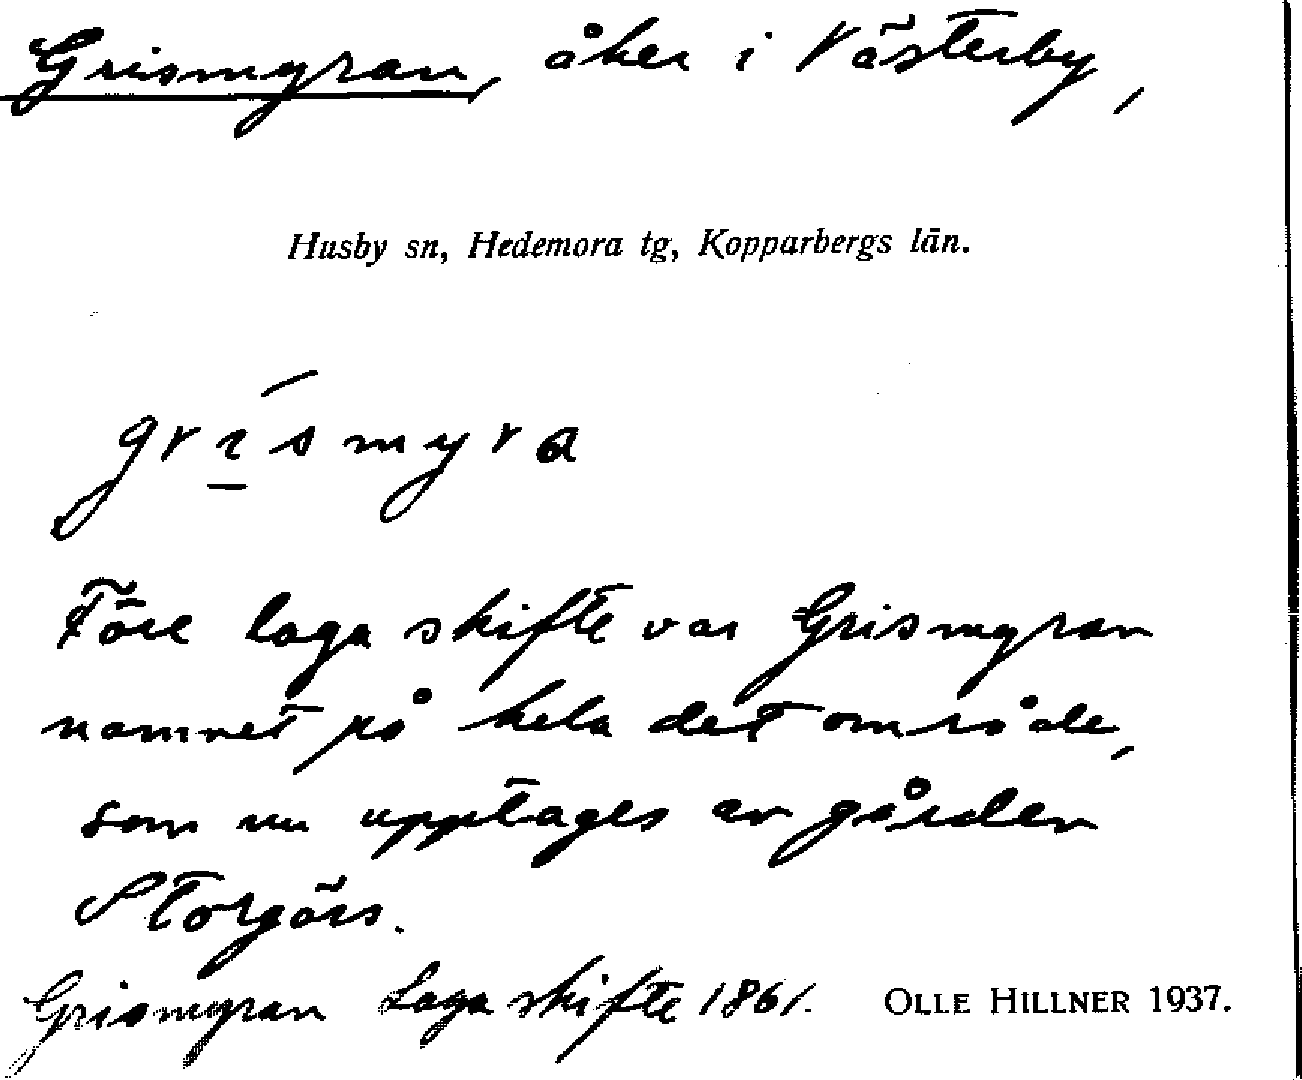 Grismyran, åker i Västerby,
Husby sn, Hedemora tg, Kopparbergs län.
grísmyra
Före laga skifte var Grismyran
namnet på hela det område,
som nu upptages av gården
Storgärs.
Grismyran Laga skifte 1861. OLLE HILLNER 1937.